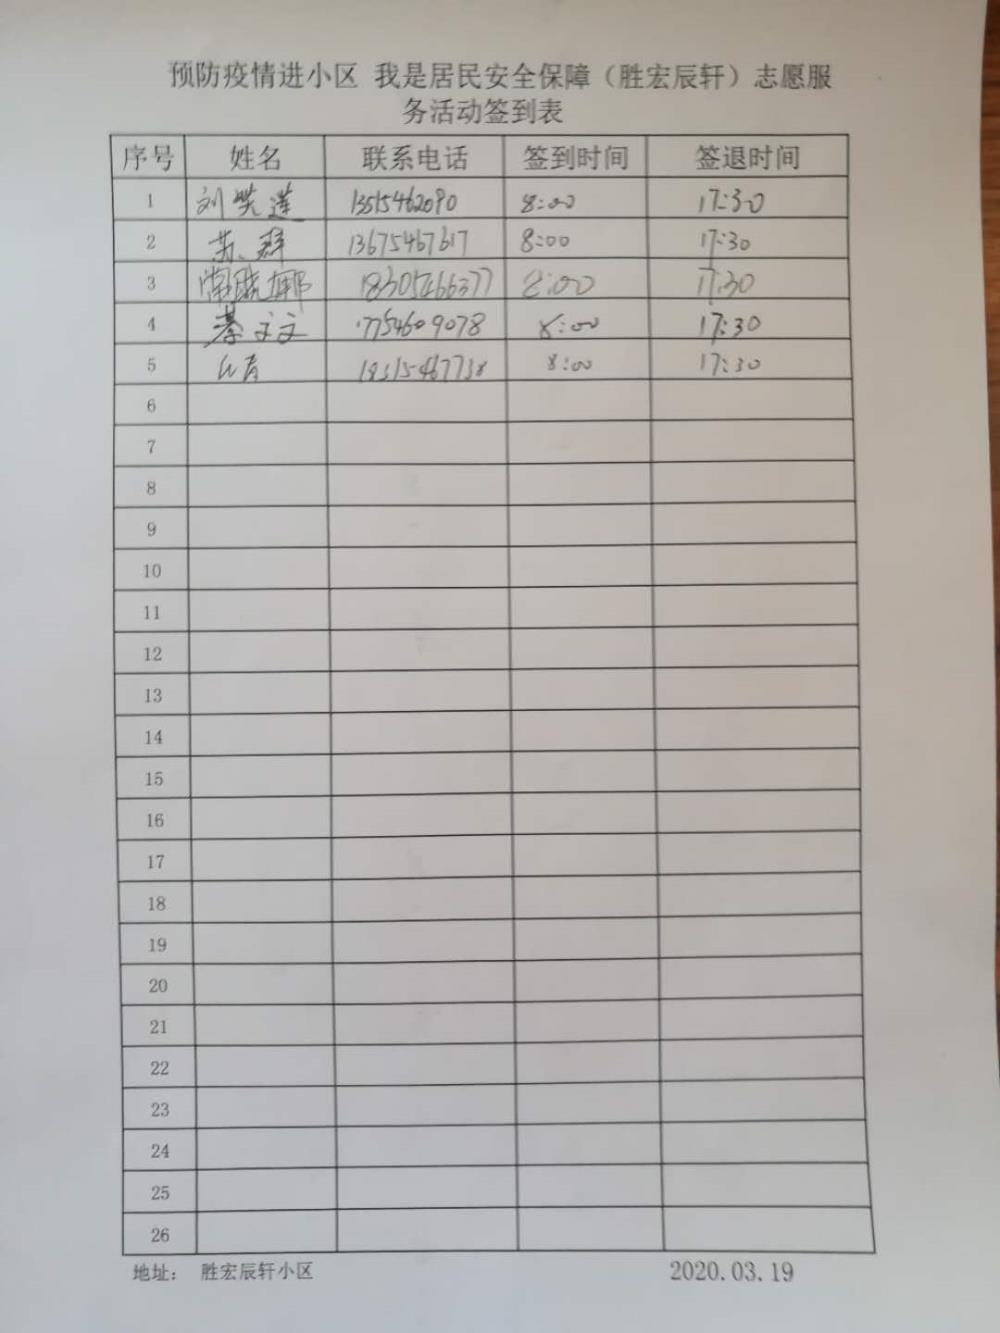 预防疫情进小区 我是居民安全保障（胜宏辰轩）志愿服
务活动签到表
序号 姓名 联系电话 签到时间 签退时间
1 刘笑莲 13515462090 8:00 17:30
2 苏群 13675467617 8:00 17:30
3 常晓娜 18305466377 8:00 17:30
4 綦文文 17754609078 8:00 17:30
5 8:00 17:30
6
7
8
9
10
11
12
13
14
15
16
17
18
19
20
21
22
23
24
25
26
地址： 胜宏辰轩小区 2020.03.19